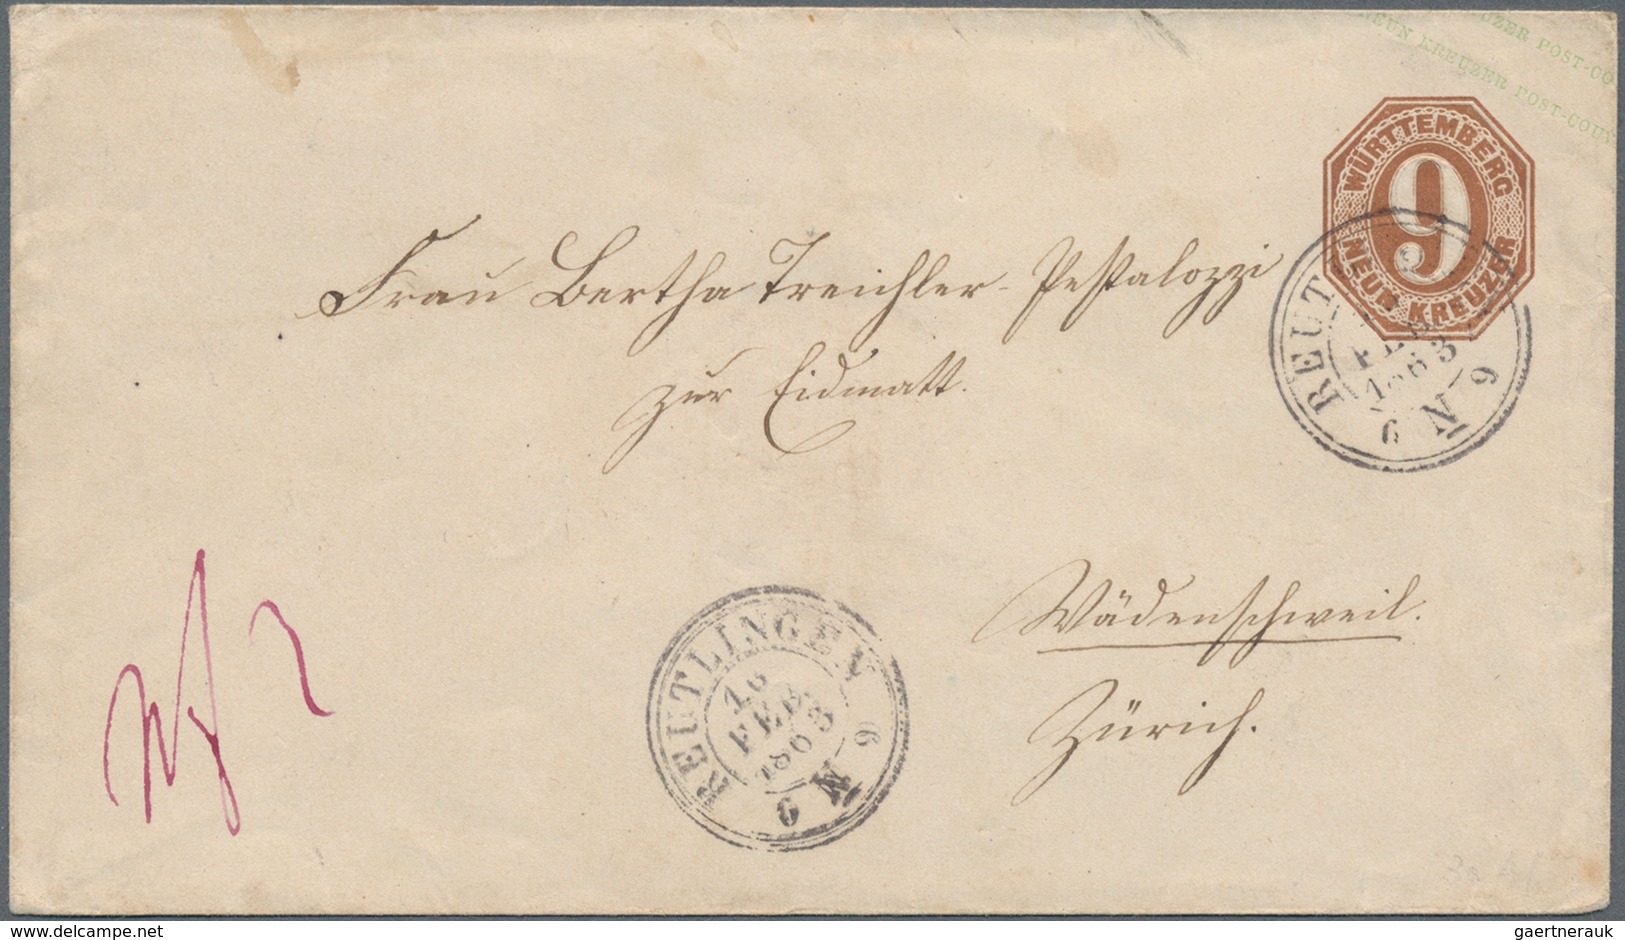 UZER POST-CO
NEUN KREUZER POST-COUV
WÜRTTEMBERG
9
NEUN KREUZER
REUT
FEB
1863
6 N 9
Frau Bertha Treichler-Pestalozzi
zur Eidmatt.
Wädenschweil.
Zürich.
REUTLINGEN
16
FEB.
1863
6 N 9
delcampe.net
gaertnerauk